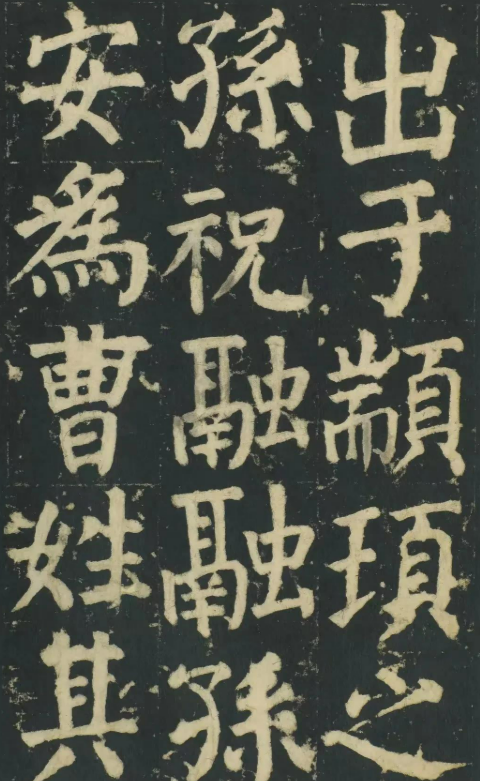 出于顓頊之
孫祝融融孫
安為曹姓其